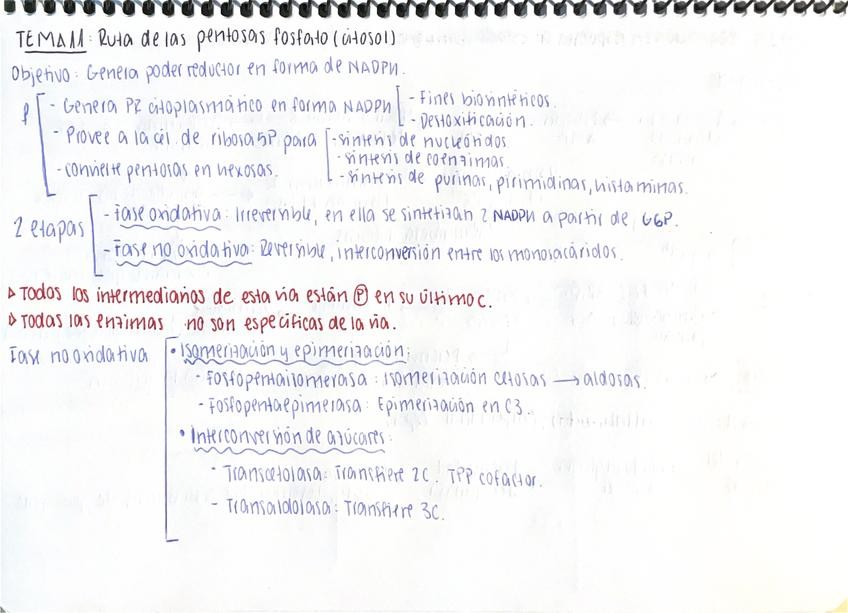 TEMA 11: Ruta de las pentosas fosfato (citosol)
Objetivo: Genera poder reductor en forma de NADPH.
- Genera PR citoplasmático en forma NADPH - Fines biosintéticos.
- Destoxificación.
- Provee a la cél. de ribosa 5P para - síntesis de nucleótidos
- síntesis de coenzimas.
- convierte pentosas en hexosas. - síntesis de purinas, pirimidinas, histaminas.
2 etapas - Fase oxidativa: Irreversible, en ella se sintetizan 2 NADPH a partir de G6P.
- Fase no oxidativa: Reversible, interconversión entre los monosacáridos.
▷ Todos los intermediarios de esta vía están Ⓟ en su último C.
▷ Todas las enzimas no son específicas de la vía.
Fase no oxidativa • Isomerización y epimerización:
- Fosfopentaisomerasa: Isomerización cetosas → aldosas.
- Fosfopentaepimerasa: Epimerización en C3.
• Interconversión de azúcares:
- Transcetolasa: Transfiere 2C. TPP cofactor.
- Transaldolasa: Transfiere 3C.